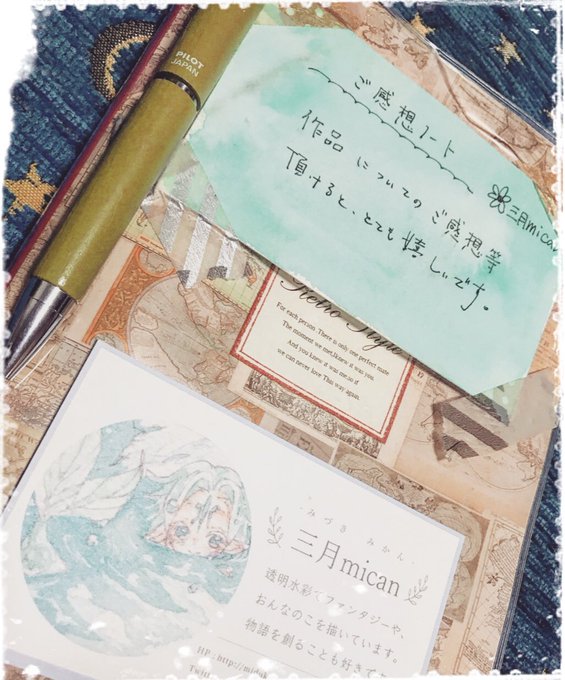 PILOT
JAPAN
ご感想ノート
作品についてのご感想等
頂けると、とても嬉しいです。
三月mican
Retro Style
For each person, There is only one perfect mate
The moment we met,I knew it was you.
And you knew it was me as if
we can never love This way again.
みづき みかん
三月mican
透明水彩でファンタジーや、
おんなのこを描いています。
物語を創ることも好きです
HP : http://miduk